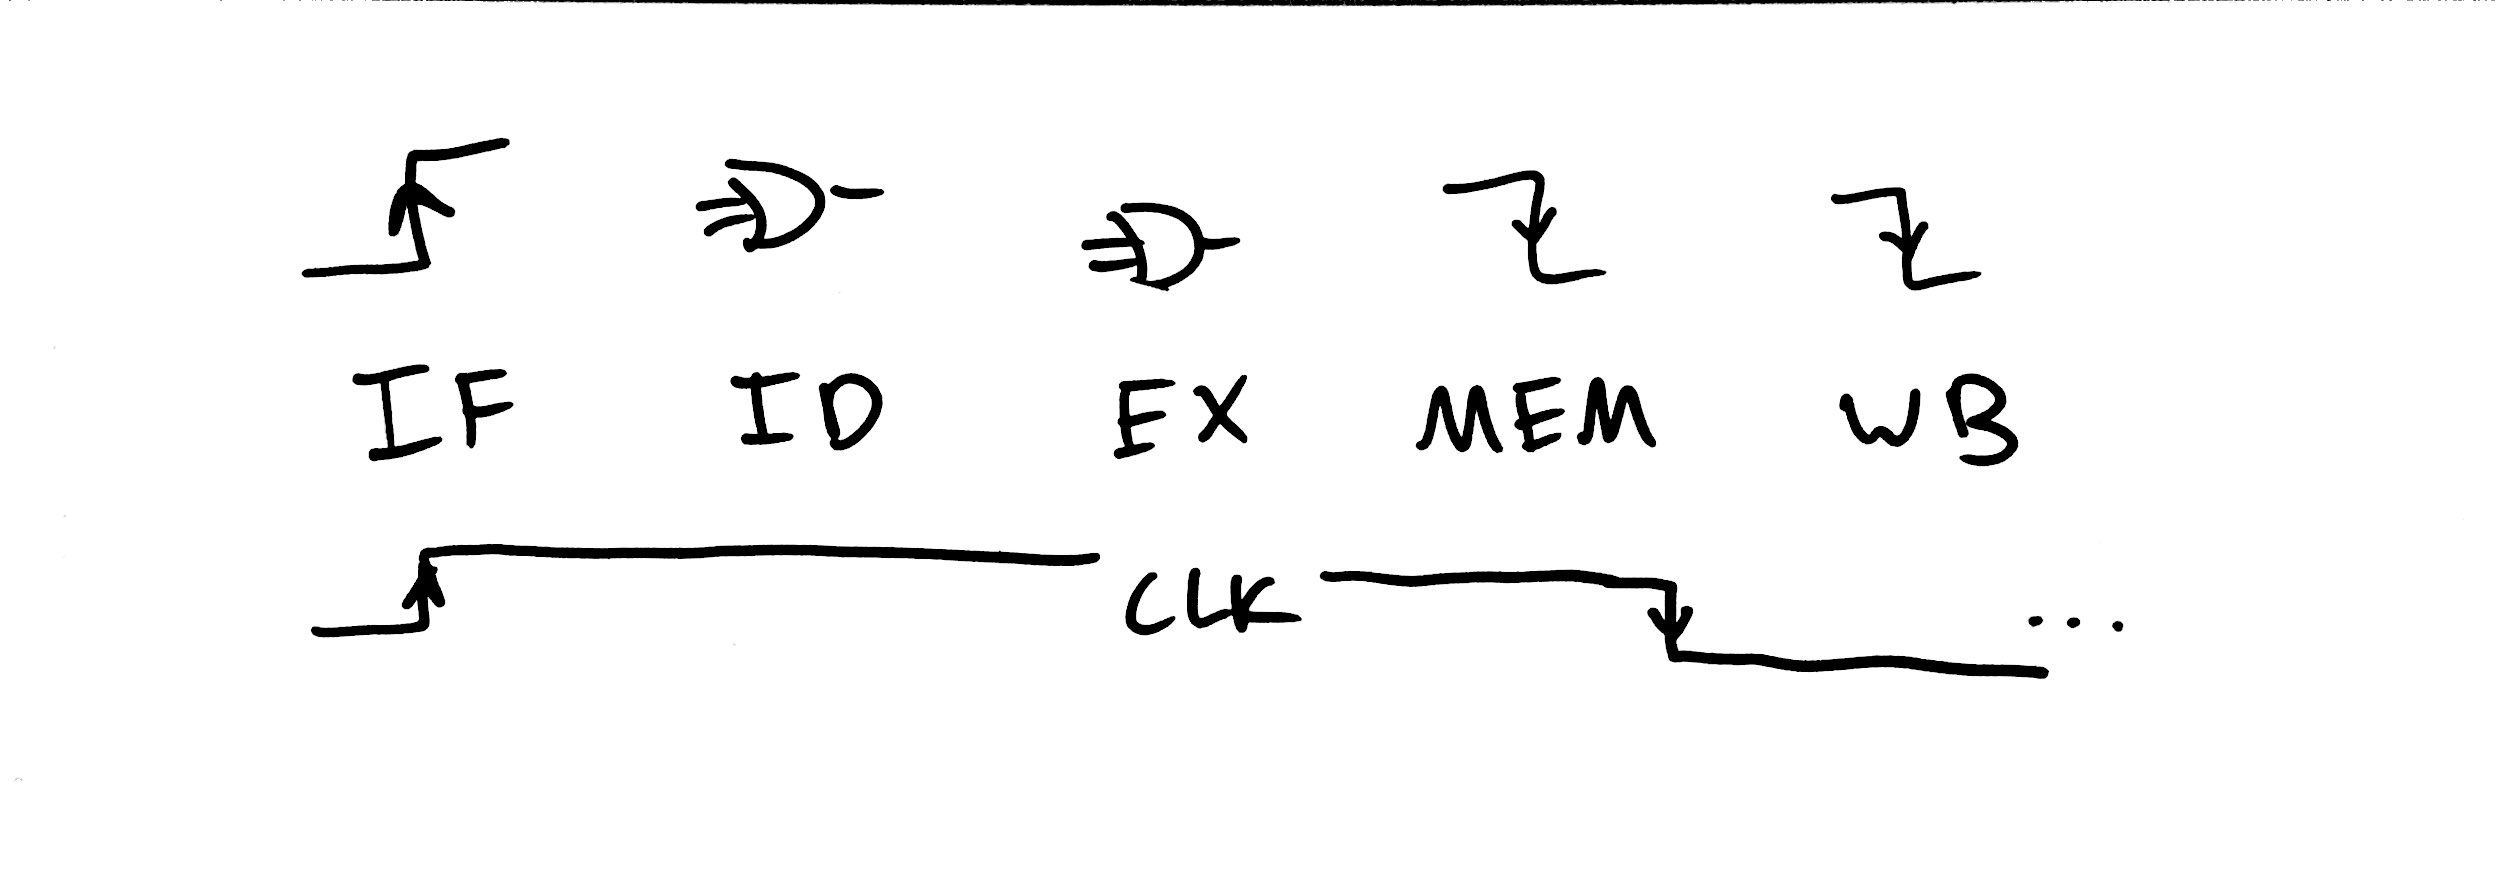 IF ID EX MEM WB
CLK ...